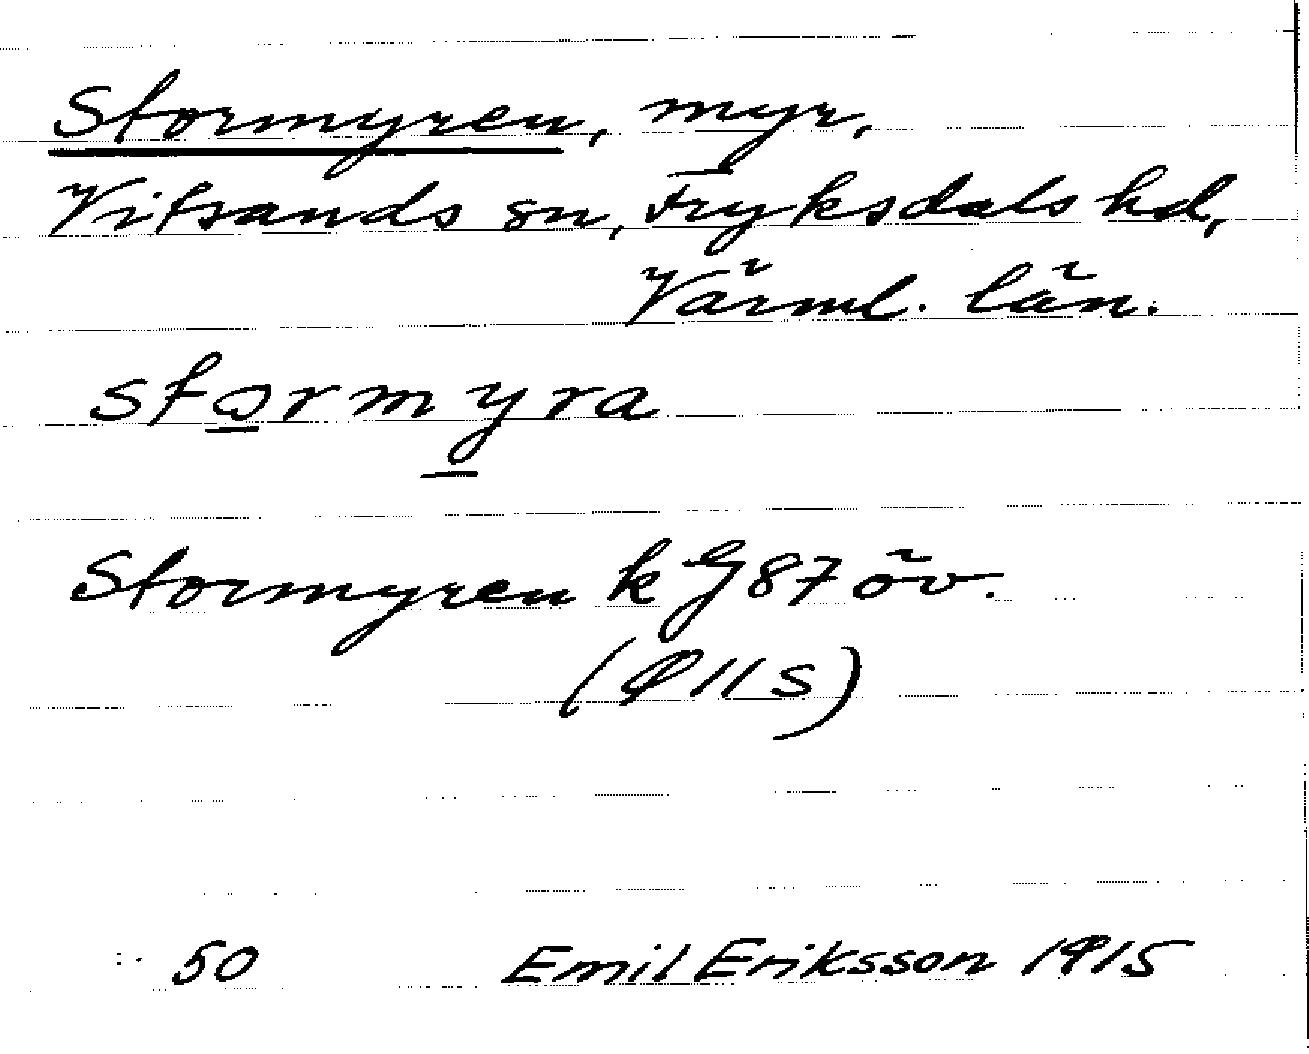 Stormyren, myr.
Vitsands sn, Fryksdals hd,
Värml. län.
stormyra
Stormyren k G 87 öv.
(911 S)
50 Emil Eriksson 1915